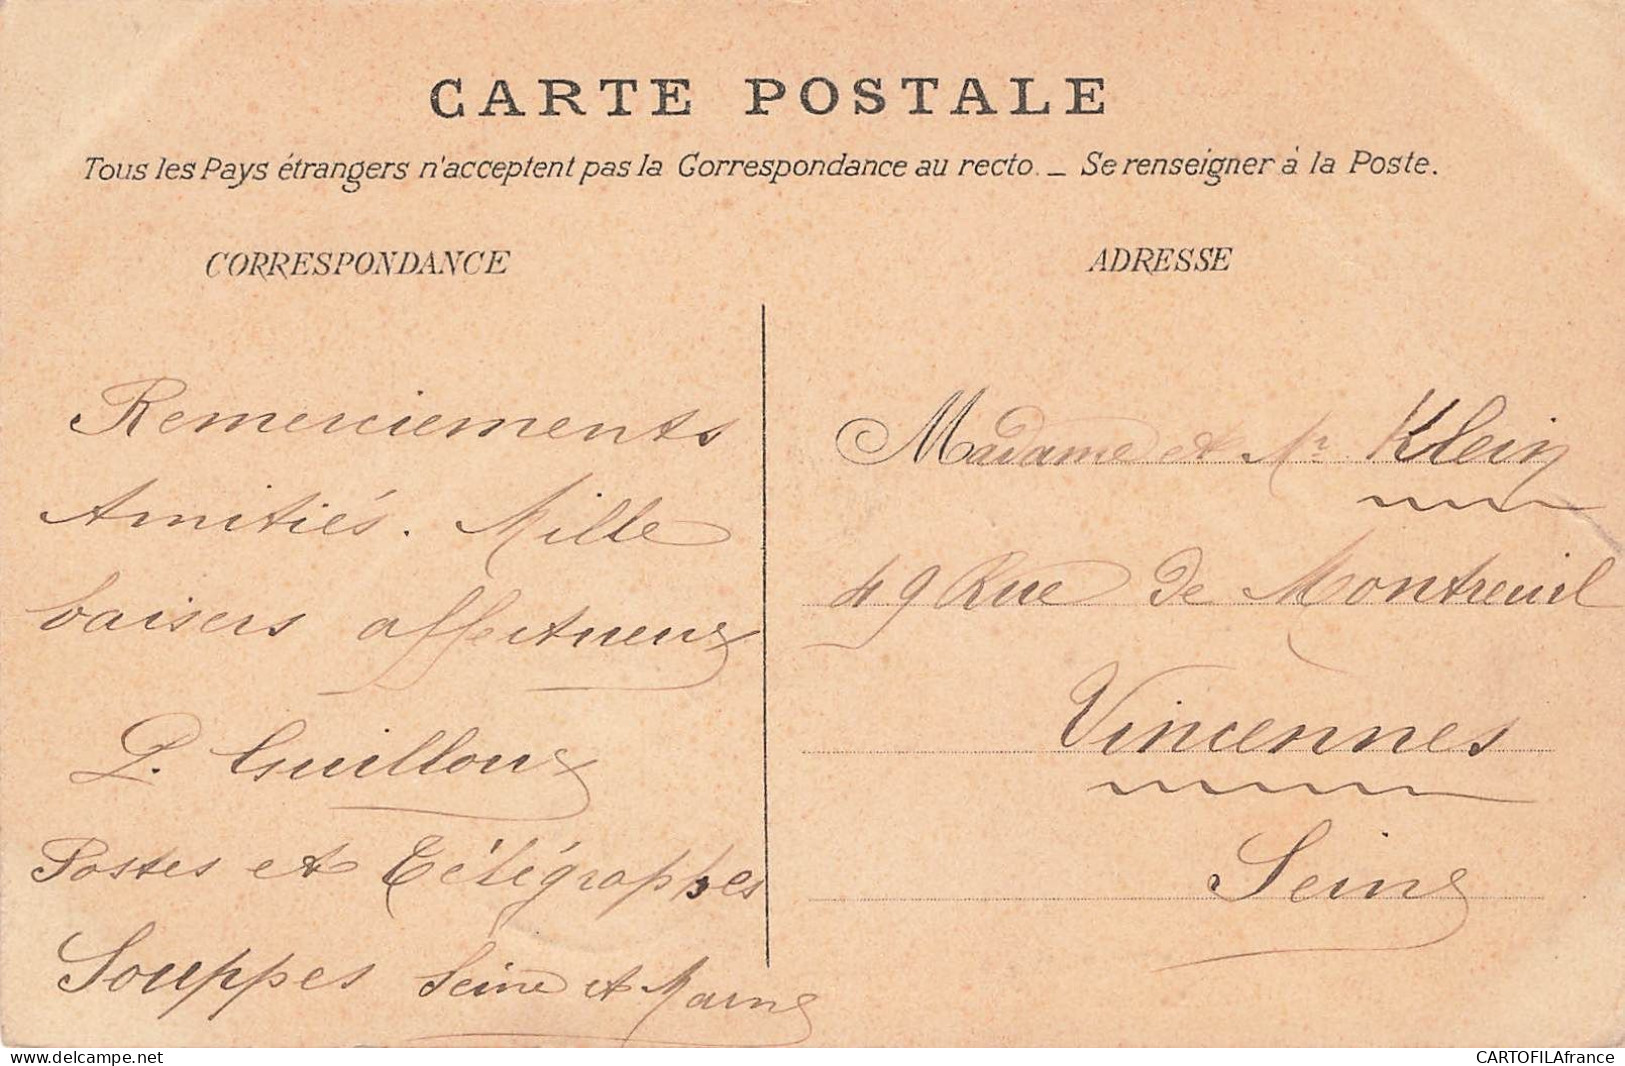 CARTE POSTALE
Tous les Pays étrangers n'acceptent pas la Correspondance au recto. _ Se renseigner à la Poste.
CORRESPONDANCE
Remerciements
Amitiés. Mille
baisers affectueux
Guilloux
Postes et Télégraphes
Souppes Seine et Marne
ADRESSE
Madame et Mr Klein
49 Rue de Montreuil
Vincennes
Seine
www.delcampe.net
CARTOFILAfrance